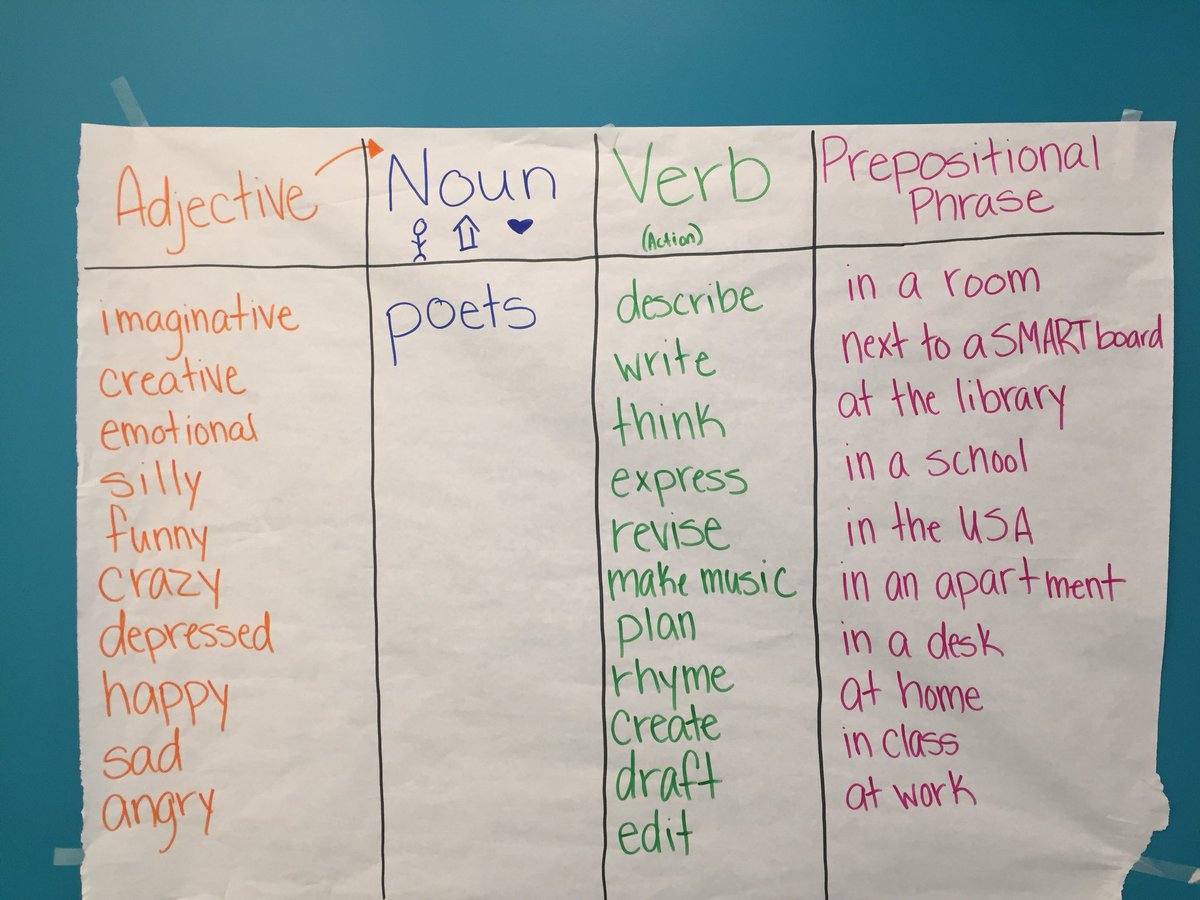 Adjective
imaginative
creative
emotional
silly
funny
crazy
depressed
happy
sad
angry
Noun
poets
Verb
(Action)
describe
write
think
express
revise
make music
plan
rhyme
create
draft
edit
Prepositional
Phrase
in a room
next to a SMART board
at the library
in a school
in the USA
in an apartment
in a desk
at home
in class
at work